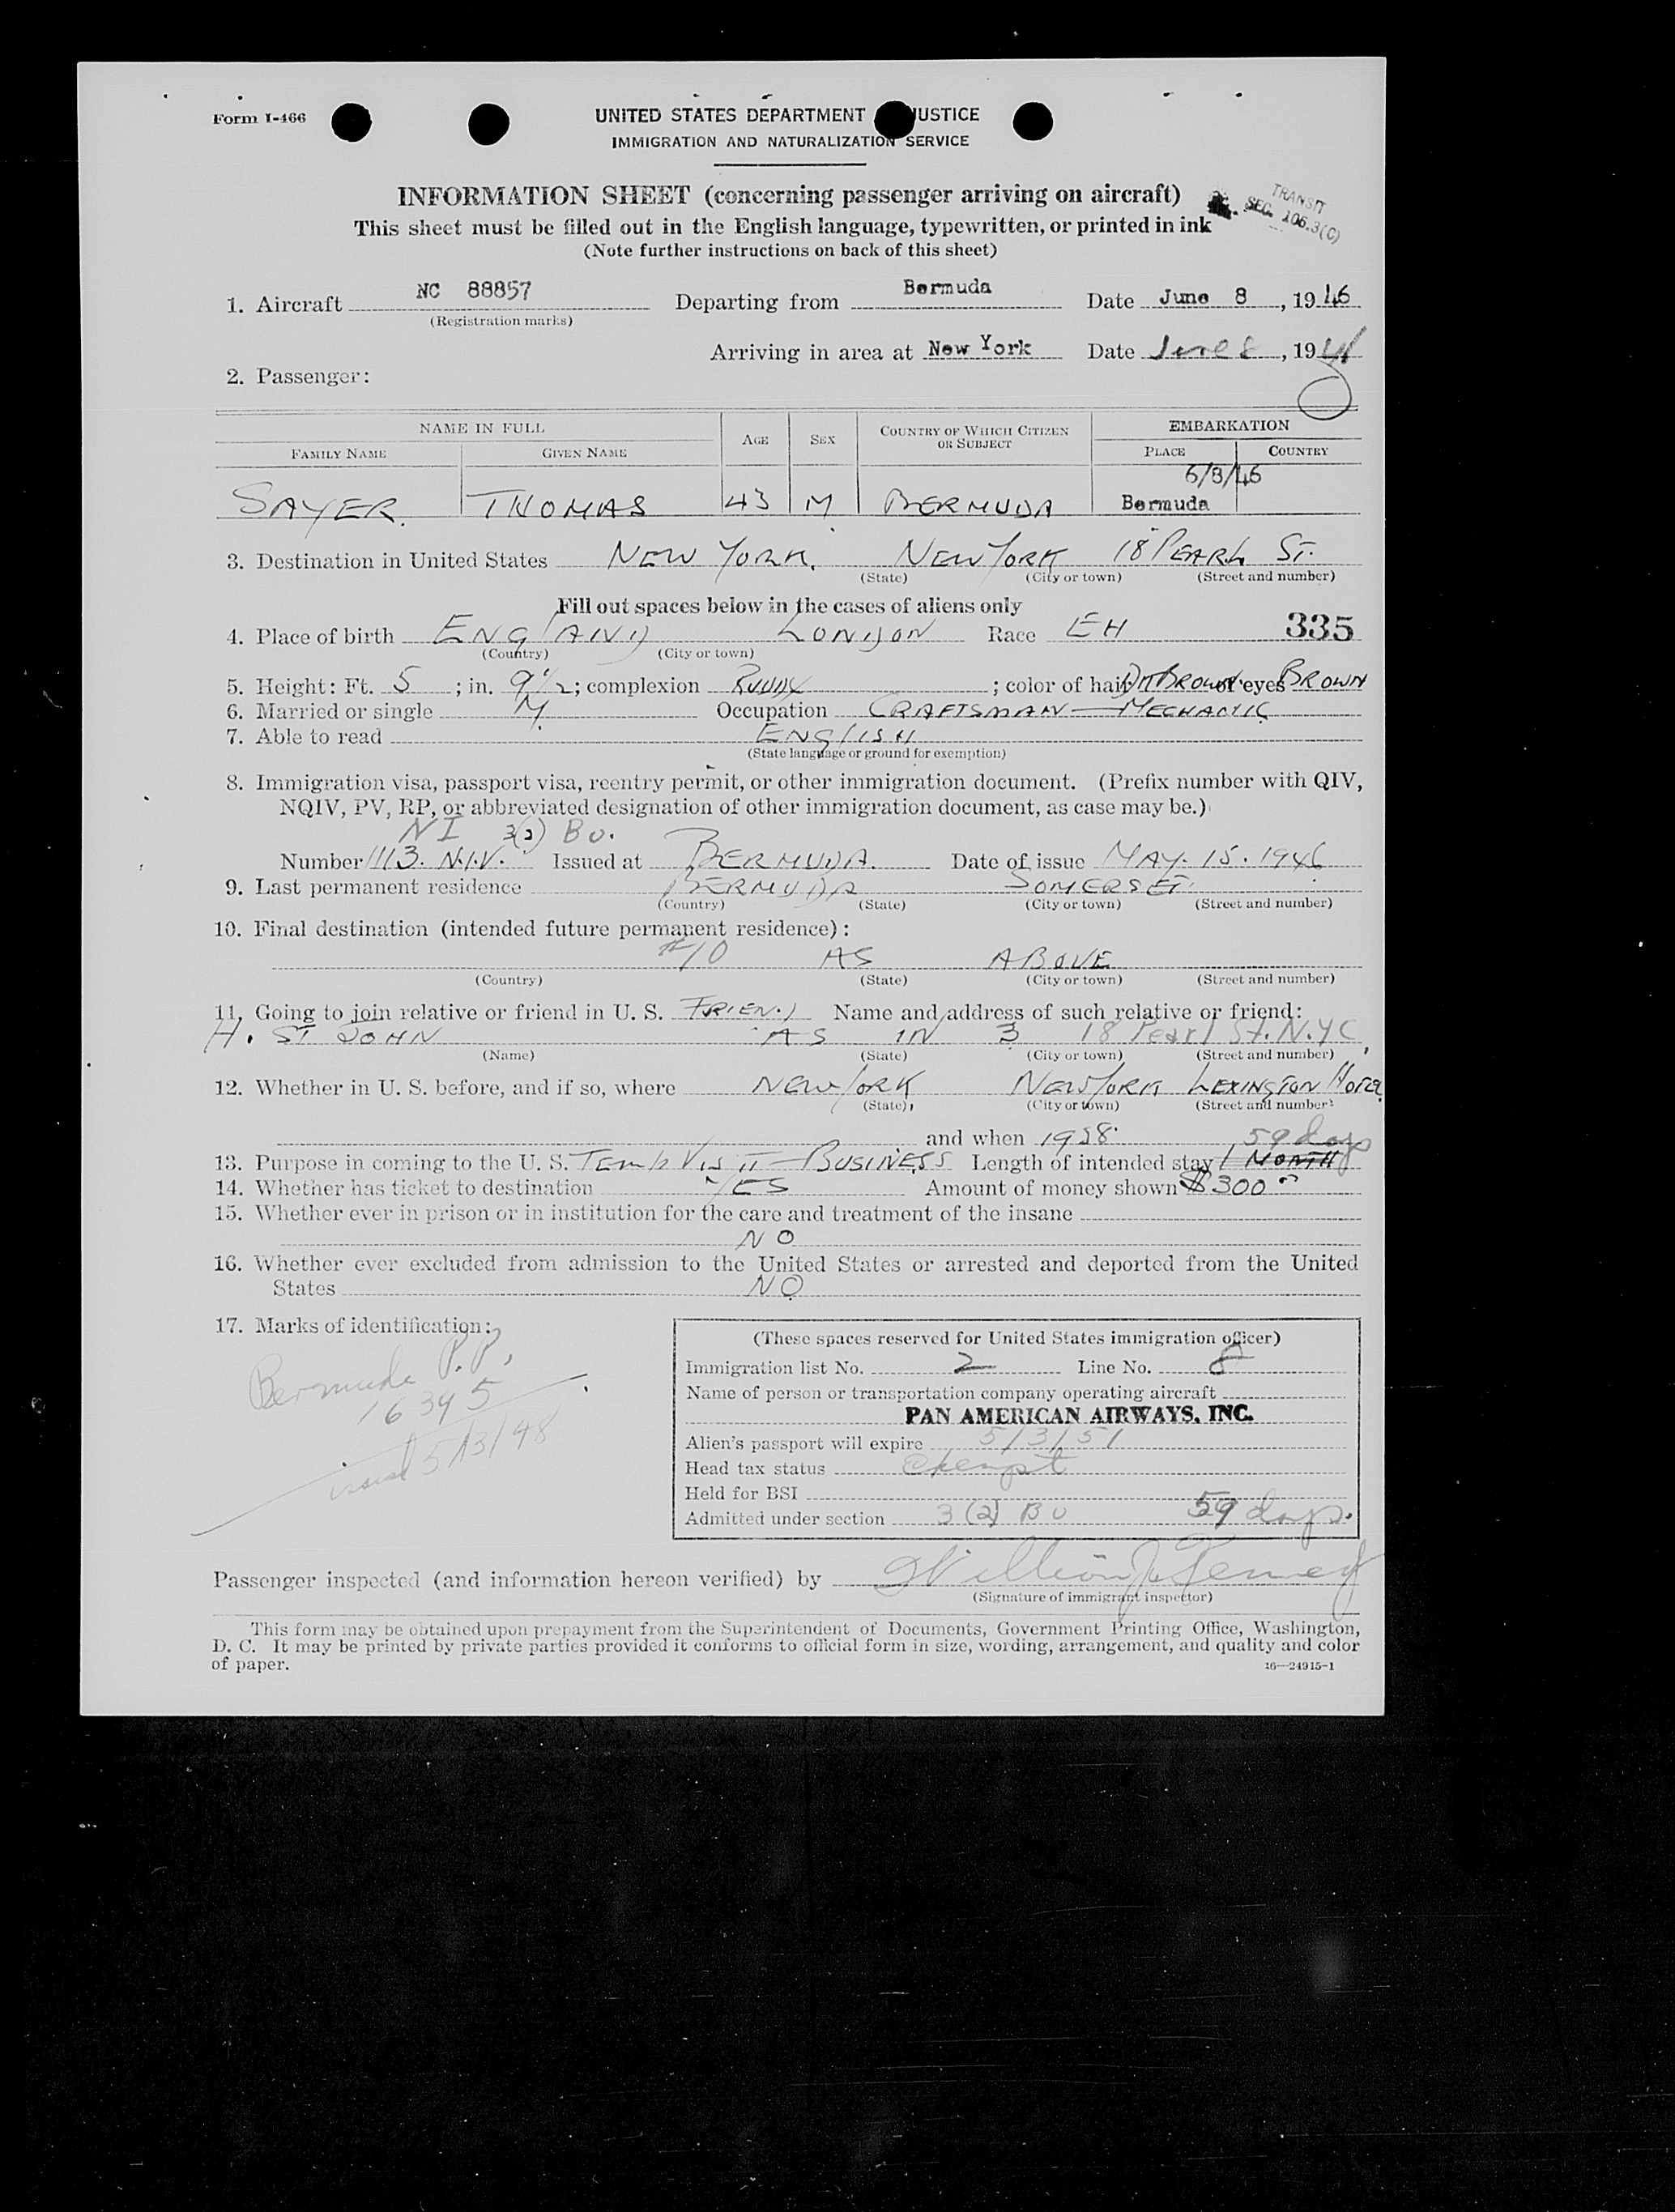 Form I-466
UNITED STATES DEPARTMENT JUSTICE
IMMIGRATION AND NATURALIZATION SERVICE
INFORMATION SHEET (concerning passenger arriving on aircraft)
TRANSIT
SEC. 106.3(C)
This sheet must be filled out in the English language, typewritten, or printed in ink
(Note further instructions on back of this sheet)
1. Aircraft NC 88857 Departing from Bermuda Date June 8, 1946
(Registration marks)
Arriving in area at New York Date June 8, 19
2. Passenger:
NAME IN FULL AGE SEX COUNTRY OF WHICH CITIZEN OR SUBJECT EMBARKATION
FAMILY NAME GIVEN NAME PLACE COUNTRY
6/8/46
SAYER. THOMAS 43 M BERMUDA Bermuda
3. Destination in United States NEW YORK. NEW YORK 18 PEARL ST.
(State) (City or town) (Street and number)
Fill out spaces below in the cases of aliens only
4. Place of birth ENGLAND LONDON Race EH 335
(Country) (City or town)
5. Height: Ft. 5; in. 9 1/2; complexion RUDDY; color of hair DK BROWN of eyes BROWN
6. Married or single M. Occupation CRAFTSMAN — MECHANIC
7. Able to read ENGLISH
(State language or ground for exemption)
8. Immigration visa, passport visa, reentry permit, or other immigration document. (Prefix number with QIV,
NQIV, PV, RP, or abbreviated designation of other immigration document, as case may be.)
NI 3(2) BU.
Number 1113. N.I.V. Issued at BERMUDA. Date of issue MAY. 15. 1946
9. Last permanent residence BERMUDA SOMERSET.
(Country) (State) (City or town) (Street and number)
10. Final destination (intended future permanent residence):
#10 AS ABOVE
(Country) (State) (City or town) (Street and number)
11. Going to join relative or friend in U. S. FRIEND Name and address of such relative or friend:
H. ST JOHN AS IN 3 18 Pearl St. N.Y.C.
(Name) (State) (City or town) (Street and number)
12. Whether in U. S. before, and if so, where NEW YORK NEW YORK LEXINGTON HOTEL
(State) (City or town) (Street and number)
and when 1938. 59 days
13. Purpose in coming to the U. S. TEMP VISIT — BUSINESS Length of intended stay 1 MONTH
14. Whether has ticket to destination YES Amount of money shown $300
15. Whether ever in prison or in institution for the care and treatment of the insane
NO
16. Whether ever excluded from admission to the United States or arrested and deported from the United
States NO
17. Marks of identification:
Bermuda P.P.
16395
issued 5/13/48
(These spaces reserved for United States immigration officer)
Immigration list No. 2 Line No. 8
Name of person or transportation company operating aircraft
PAN AMERICAN AIRWAYS, INC.
Alien's passport will expire 5/3/51
Head tax status Exempt
Held for BSI
Admitted under section 3(2) BU 59 days.
Passenger inspected (and information hereon verified) by William J.
(Signature of immigrant inspector)
This form may be obtained upon prepayment from the Superintendent of Documents, Government Printing Office, Washington,
D. C. It may be printed by private parties provided it conforms to official form in size, wording, arrangement, and quality and color
of paper.
16—24915-1